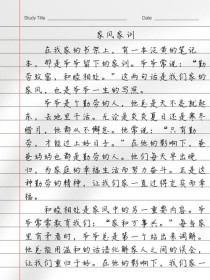 Study Title: Date:
家风家训
在我家的书架上，有一本泛黄的笔记
本，那是爷爷留下的家训。爷爷常说：“勤
劳致富，和睦相处。”这两句话是我们家的
家风，也是爷爷一生的写照。
爷爷是个勤劳的人，他总是天不亮就起
床，去地里干活。无论是炎炎夏日还是寒冬
腊月，他都从不懈怠。他常说：“只有勤
劳，才能过上好日子。”在他的影响下，爸
爸妈妈也都是勤劳的人。他们每天早出晚
归，为家庭的幸福生活而努力奋斗。正是这
种勤劳的精神，让我们家一直过得定实而幸
福。
和睦相处是家风中的另一重要内容。爷
爷常常教育我们：“家和万事兴。”每当家
里有矛盾时，爷爷总是第一个站出来调解。
他总能用温和的话语化解家人之间的误会，
让我们重归于好。在他的影响下，我们家一